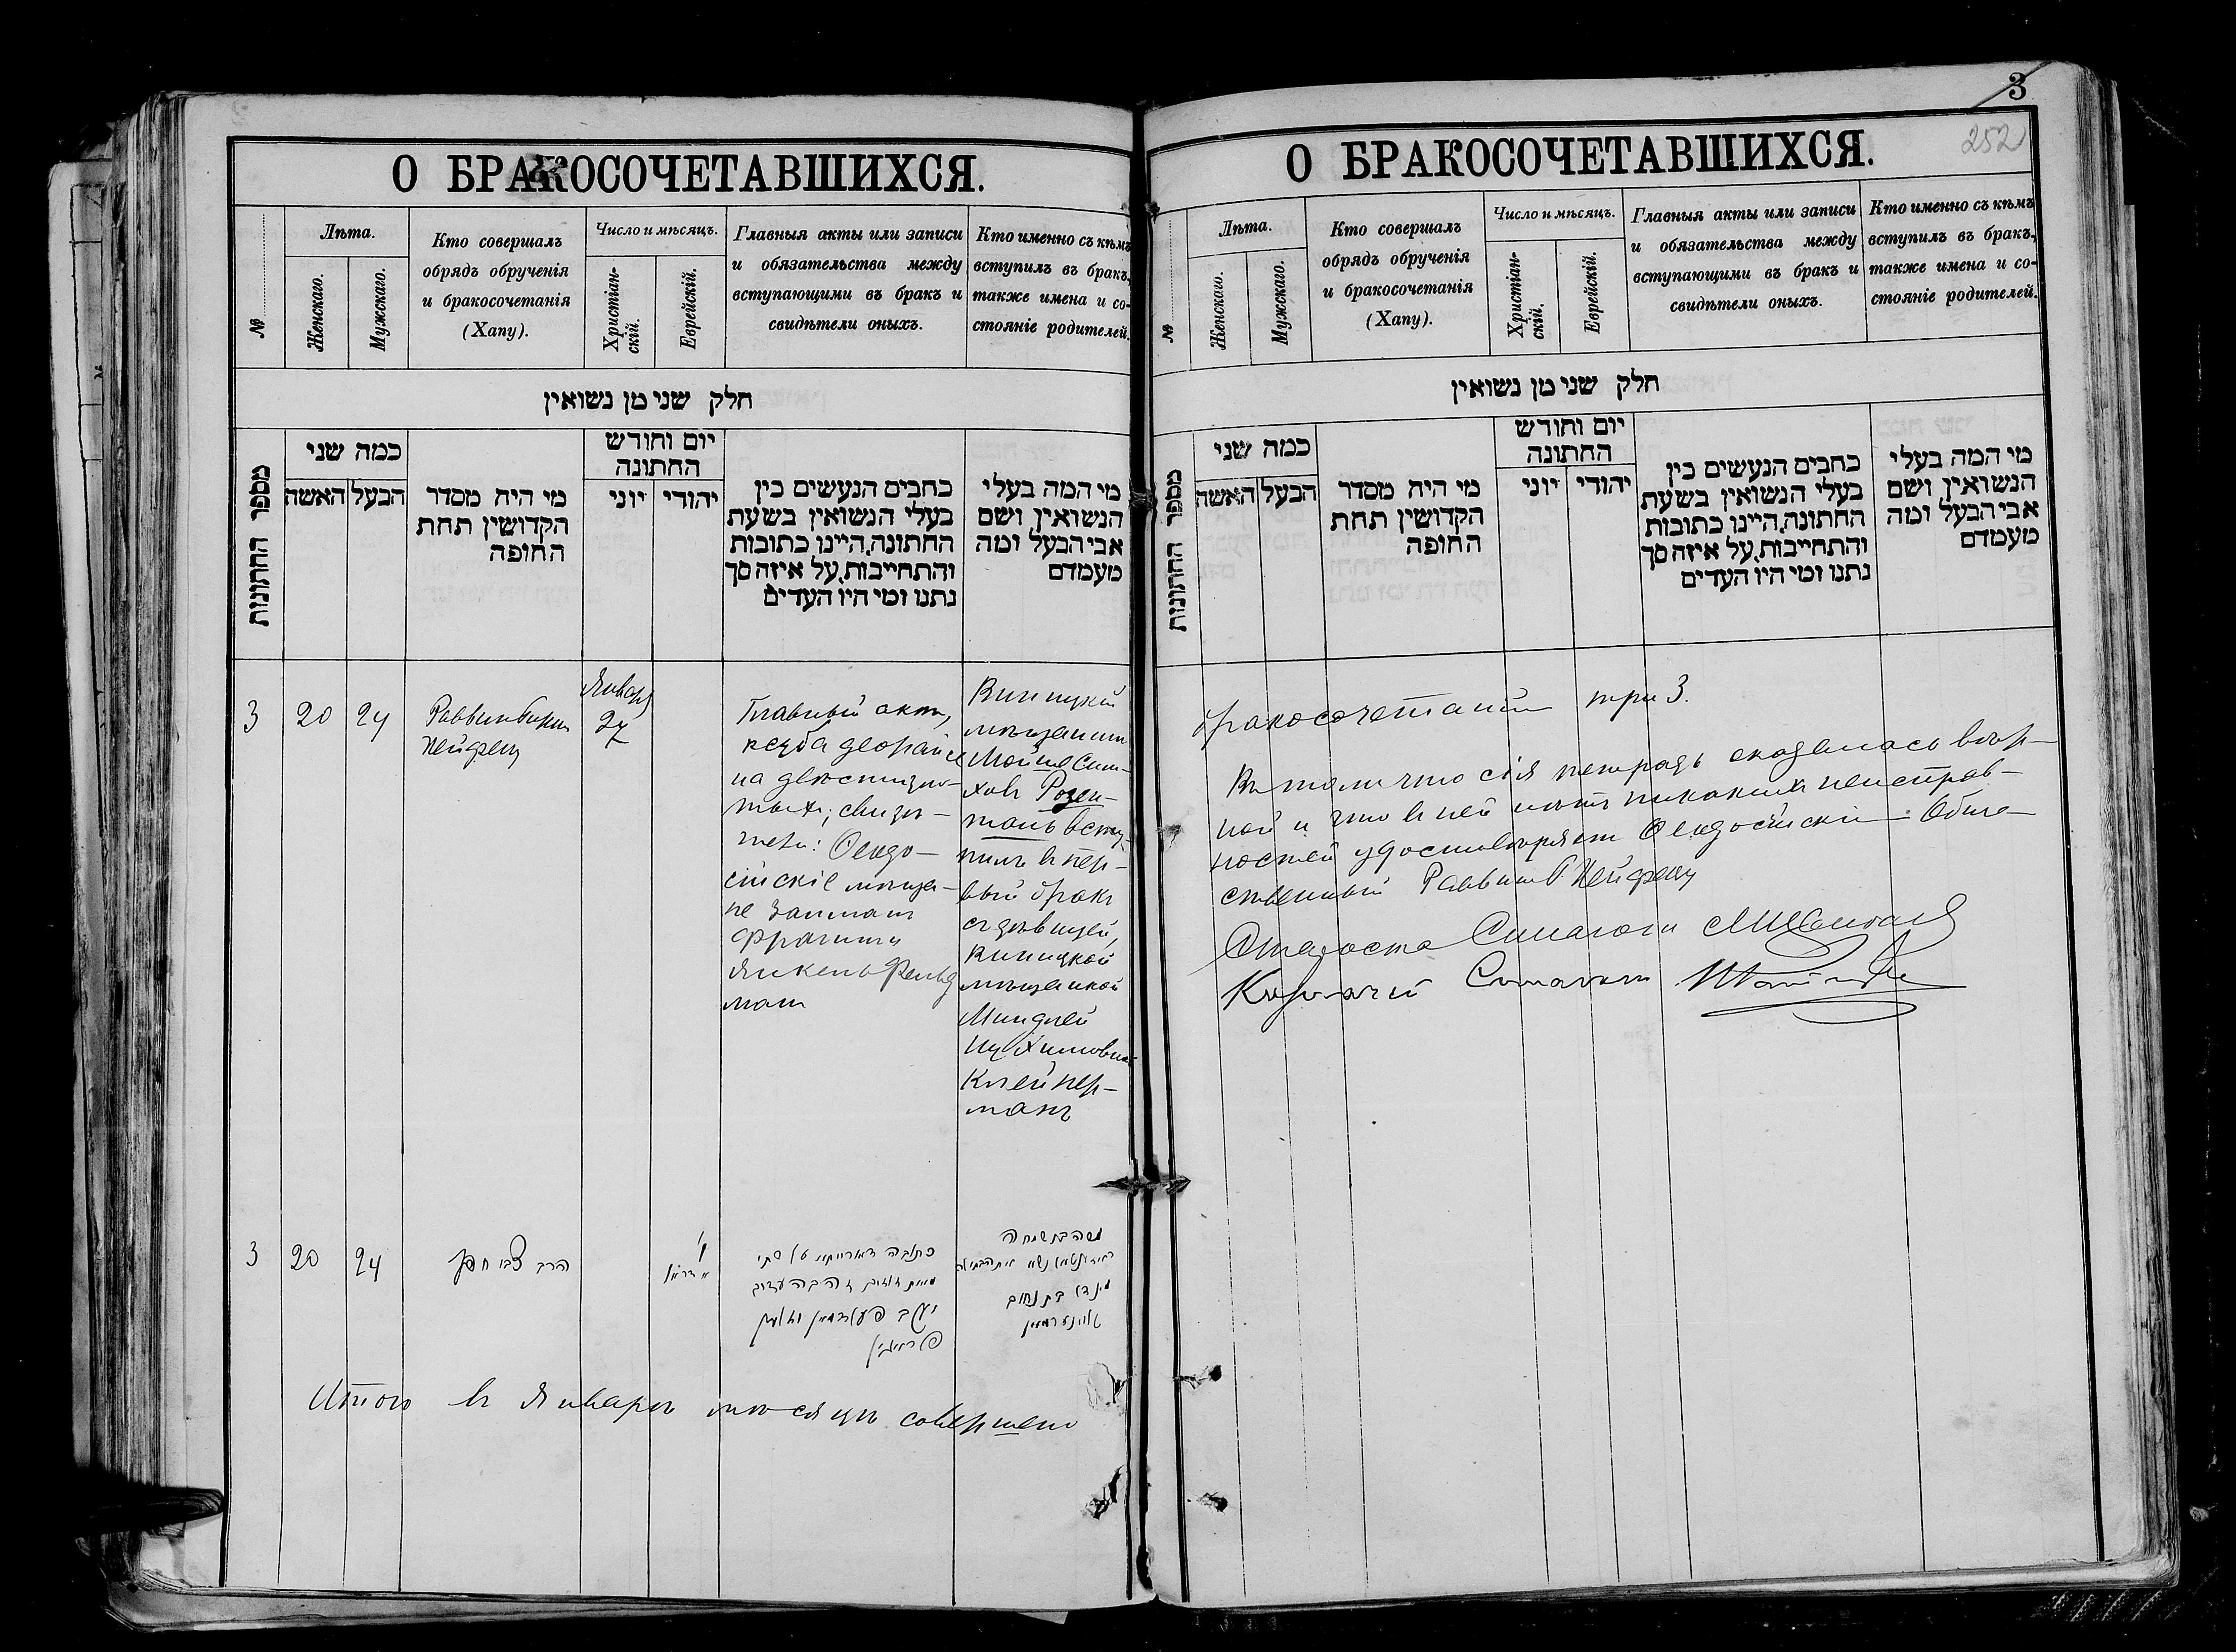 О БРАКОСОЧЕТАВШИХСЯ.
№
Лѣта.
Женскаго.
Мужскаго.
Кто совершалъ
обрядъ обрученія
и бракосочетанія
(Хапу).
Число и мѣсяцъ.
Христіан-
скій.
Еврейскій.
Главныя акты или записи
и обязательства между
вступающими въ бракъ и
свидѣтели оныхъ.
Кто именно съ кѣмъ
вступилъ въ бракъ,
также имена и со-
стояніе родителей.
חלק שני מן נשואין
מספר החתונות
כמה שני
האשה
הבעל
מי היה מסדר
הקדושין תחת
החופה
יום וחודש
החתונה
יוני
יהודי
כתבים הנעשים בין
בעלי הנשואין בשעת
החתונה, היינו כתובות
והתחייבות, על איזה סך
נתנו ומי היו העדים
מי המה בעלי
הנשואין ושם
אבי הבעל ומה
מעמדם
3
20
24
Раввинъ
Нейфецъ
Января
27
Главный актъ,
ксуба деорайсе
на двѣсти зло-
тыхъ; свидѣ-
тели: Ѳеодо-
сійскіе мѣща-
не Залманъ
Фрагинъ и
Янкель Фельд
манъ
Виницкій
мѣщанинъ
Мойше Сим-
ховъ Розен-
талъ всту-
пилъ въ пер-
вый бракъ
съ дѣвицей,
Виницкой
мѣщанкой
Миндлей
Клейнер-
манъ
3
20
24
הרב צבי חפץ
כתובה דארייתא על שתי
מאות זהובים
יעקב פעלדמאן וזלמן
פראגין
מינדל בת נחום
קליינערמאן
Итого въ Январѣ мѣсяцѣ совершено
3
252
О БРАКОСОЧЕТАВШИХСЯ.
№
Лѣта.
Женскаго.
Мужскаго.
Кто совершалъ
обрядъ обрученія
и бракосочетанія
(Хапу).
Число и мѣсяцъ.
Христіан-
скій.
Еврейскій.
Главныя акты или записи
и обязательства между
вступающими въ бракъ и
свидѣтели оныхъ.
Кто именно съ кѣмъ
вступилъ въ бракъ,
также имена и со-
стояніе родителей.
חלק שני מן נשואין
מספר החתונות
כמה שני
האשה
הבעל
מי היה מסדר
הקדושין תחת
החופה
יום וחודש
החתונה
יוני
יהודי
כתבים הנעשים בין
בעלי הנשואין בשעת
החתונה, היינו כתובות
והתחייבות, על איזה סך
נתנו ומי היו העדים
מי המה בעלי
הנשואין ושם
אבי הבעל ומה
מעמדם
бракосочетаній три 3.
Въ томъ что сія тетрадь оказалась вѣр-
ной и что въ ней нѣтъ никакихъ неисправ-
ностей удостовѣряетъ Ѳеодосійскій Обще-
ственный Раввинъ Нейфецъ
Староста Синагоги
Казначей Синагоги